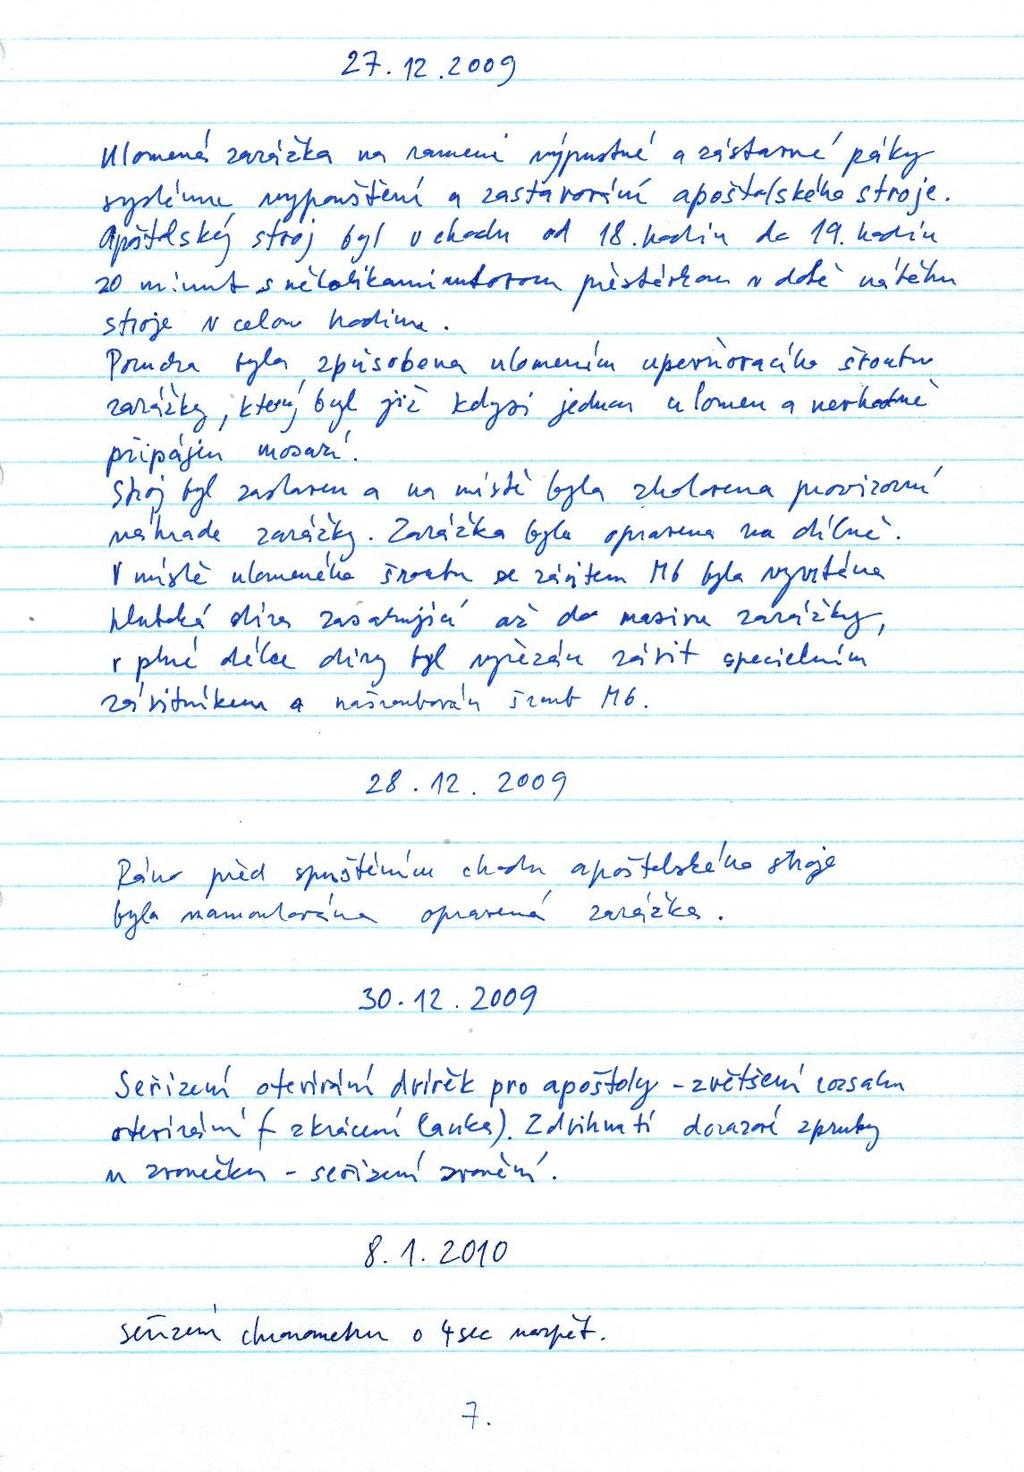 27.12.2009
Ulomená zarážka na rameni výpustné a zástavné páky
systému vypouštění a zastavování apoštolského stroje.
Apoštolský stroj byl v chodu od 18. hodin do 19. hodin
20 minut s několikaminutovou přestávkou v době náběhu
stroje v celou hodinu.
Porucha byla způsobena ulomením upevňovacího šroubu
zarážky, který byl již kdysi jednou ulomen a nevhodně
připájen mosazí.
Stroj byl zastaven a na místě byla zhotovena provizorní
náhrada zarážky. Zarážka byla opravena na dílně.
V místě ulomeného šroubu se závitem M6 byla vyvrtána
hluboká díra zasahující až do masivu zarážky,
v plné délce díry byl vyřezán závit specielním
závitníkem a našroubován šroub M6.
28.12.2009
Ráno před spuštěním chodu apoštolského stroje
byla namontována opravená zarážka.
30.12.2009
Seřízení otevírání dvířek pro apoštoly - zvětšení rozsahu
otevírání (- zkrácení lanka). Zdvihnutí dorazové zpruhy
u zvonečku - seřízení zvonění.
8.1.2010
Seřízení chronometru o 4 sec nazpět.
7.